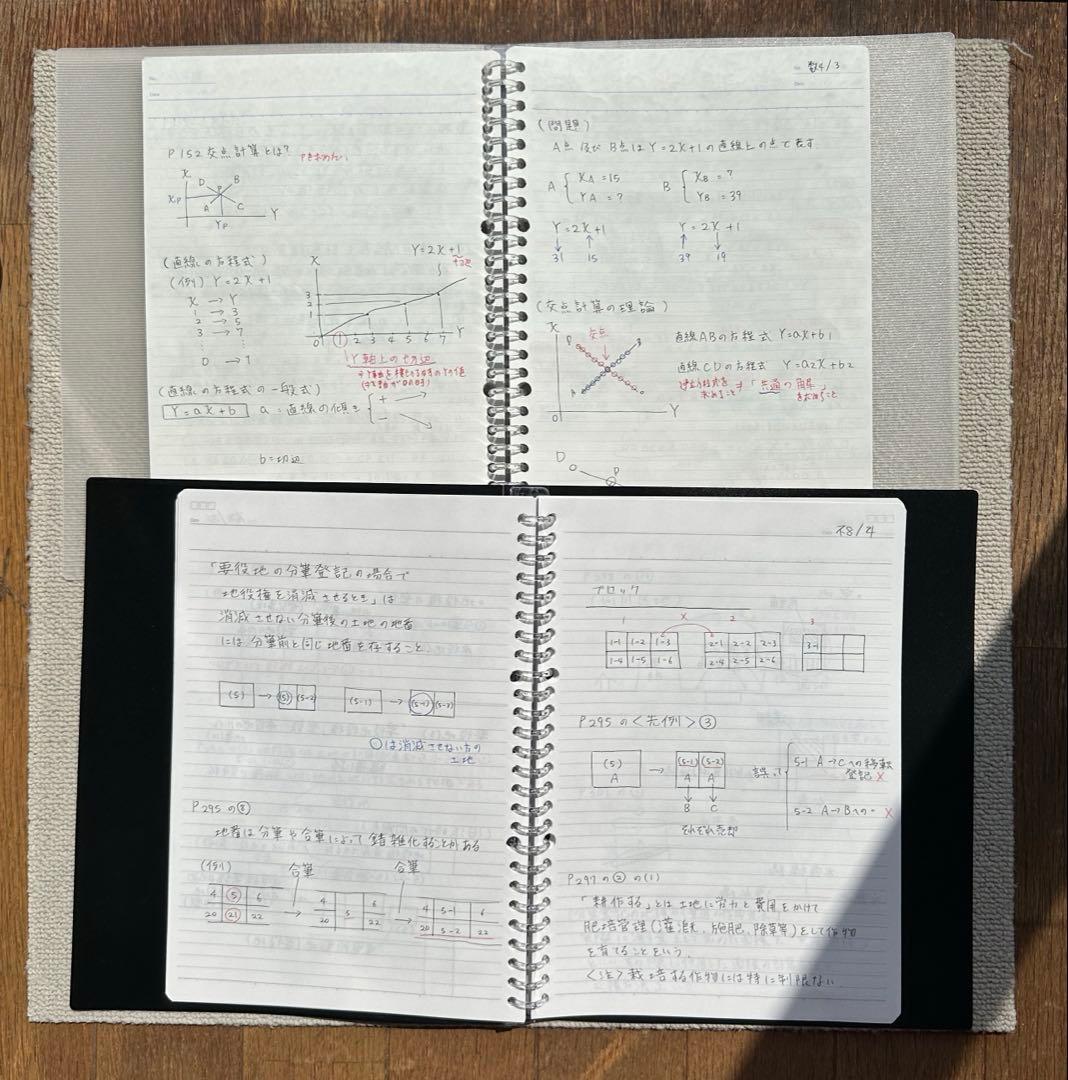 P152 交点計算とは? Pを求めたい
X
D
B
P
XP
A
C
YP
Y
(直線の方程式)
(例) Y=2X+1
X → Y
1 → 3
2 → 5
3 → 7
⋮ ⋮
0 → 1
Y=2X+1
切辺
X
3
2
1
0 1 2 3 4 5 6 7 Y
Y軸上の切辺
(直線の方程式の一般式)
Y=aX+b a=直線の傾き { + -
b=切辺
数4/3
(問題)
A点及びB点はY=2X+1の直線上の点で表す
A { XA=15 YA=?
B { XB=? YB=39
Y=2X+1
31 15
Y=2X+1
39 19
(交点計算の理論)
X
D
交点
B
A
C
0
Y
直線ABの方程式 Y=a1X+b1
直線CDの方程式 Y=a2X+b2
「共通の解」
を求めること
D
P
「要役地の分筆登記の場合で
地役権を消滅させるとき」は
消滅させない分筆後の土地の地番
には分筆前と同じ地番を存すること
(5) → (5) (5-2)
(5-1) → (5-1) (5-3)
○は消滅させない方の
土地
P295の⑧
地番は分筆や合筆によって錯雑化することがある
(例) 合筆 合筆
4 5 6
20 21 22
→
4 5 6
20 22
→
4 5-1 6
20 5-2 22
不8/4
ブロック
1 × 2 3
1-1 1-2 1-3
1-4 1-5 1-6
2-1 2-2 2-3
2-4 2-5 2-6
3-1
P295の<先例>③
(5) A → (5-1) A (5-2) A
B C
それぞれ売却
誤って
5-1 A→Cへの移転
登記 ×
5-2 A→Bへの〃 ×
P297の②の(1)
「耕作する」とは土地に労力と費用をかけて
肥培管理(灌漑、施肥、除草等)をして作物
を育てることをいう。
<注>栽培する作物には特に制限ない